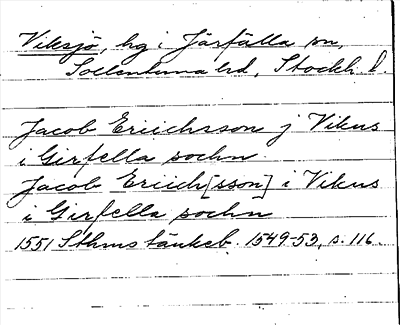 Viksjö, hg i Järfälla sn,
Sollentuna hd, Stockh l.
Jacob Eriichsson j Vikus
i Girfella sochn
Jacob Eriich[sson] i Vikus
i Girfella sochn
1551 Sthms tänkeb. 1549-53, s. 116.